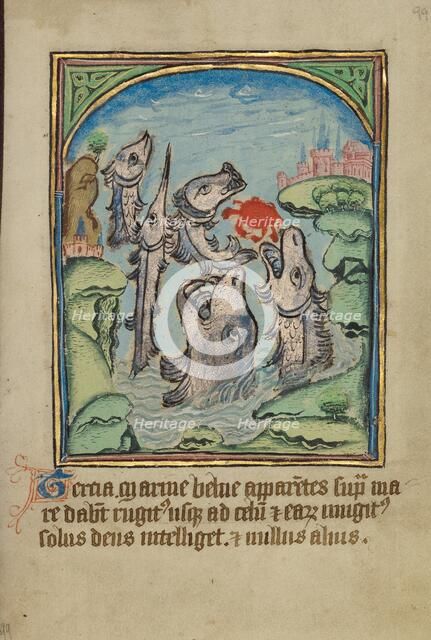 99
Heritage
Heritage
Heritage
Heritage
Heritage
Heritage
Heritage
Tercia. marine belue apparētes supͥ ma
re dabūt rugitꝰ usqꝫ ad celū ⁊ eaꝝ mugitꝰ
solus deus intelliget. ⁊ nullus alius.